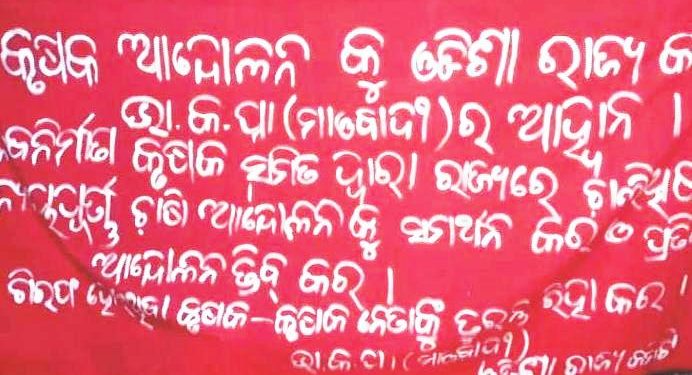 କୃଷକ ଆନ୍ଦୋଳନ କୁ ଓଡିଶା ରାଜ୍ୟ କ
ଭା.କ.ପା (ମାଓବାଦୀ) ର ଆହ୍ୱାନ ।
ନବନିର୍ମାଣ କୃଷକ ସଂଗଠନ ଦ୍ୱାରା ରାଜ୍ୟରେ
ଚାଷୀ ଆନ୍ଦୋଳନ କୁ ସମର୍ଥନ କର ଓ
ଆନ୍ଦୋଳନ ତିବ୍ର କର ।
ଗିରଫ କୃଷକ – କୃଷକ ନେତାଙ୍କୁ ତୁରନ୍ତ ରିହା କର ।
ଭା.କ.ପା (ମାଓବାଦୀ)
ଓଡିଶା ରାଜ୍ୟ କମିଟି